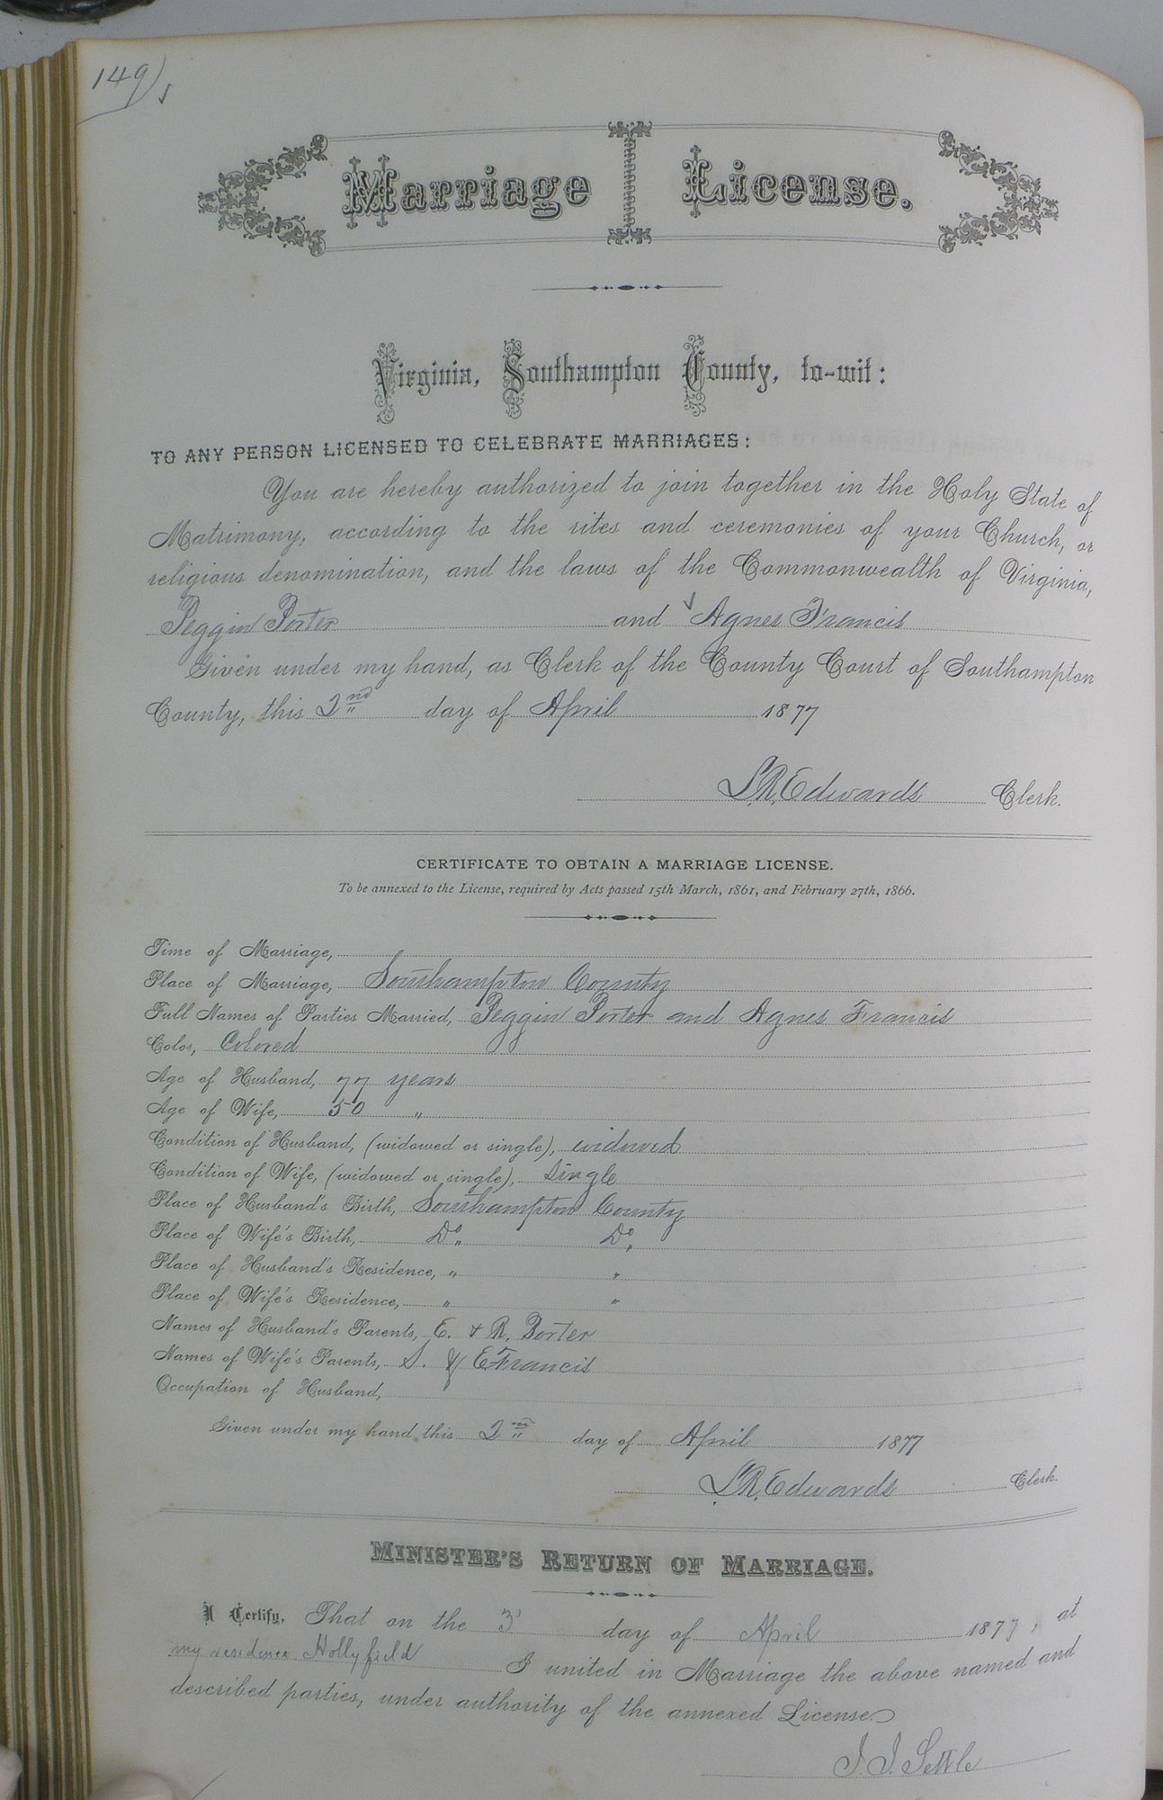 149
Marriage License.
Virginia, Southampton County, to-wit:
TO ANY PERSON LICENSED TO CELEBRATE MARRIAGES:
You are hereby authorized to join together in the Holy State of
Matrimony, according to the rites and ceremonies of your Church, or
religious denomination, and the laws of the Commonwealth of Virginia,
Peggin Porter and Agnes Francis
Given under my hand, as Clerk of the County Court of Southampton
County, this 2nd day of April 1877
L.R. Edwards Clerk.
CERTIFICATE TO OBTAIN A MARRIAGE LICENSE.
To be annexed to the License, required by Acts passed 15th March, 1861, and February 27th, 1866.
Time of Marriage,
Place of Marriage, Southampton County
Full Names of Parties Married, Peggin Porter and Agnes Francis
Color, Colored
Age of Husband, 77 years
Age of Wife, 50 "
Condition of Husband, (widowed or single), widowed
Condition of Wife, (widowed or single), Single
Place of Husband's Birth, Southampton County
Place of Wife's Birth, Do Do
Place of Husband's Residence, " "
Place of Wife's Residence, " "
Names of Husband's Parents, E. & R. Porter
Names of Wife's Parents, S. & E Francis
Occupation of Husband,
Given under my hand this 2nd day of April 1877
L.R. Edwards Clerk
MINISTER'S RETURN OF MARRIAGE.
I Certify, That on the 3 day of April 1877, at
my residence Hollyfield I united in Marriage the above named and
described parties, under authority of the annexed License.
J. J. Settle